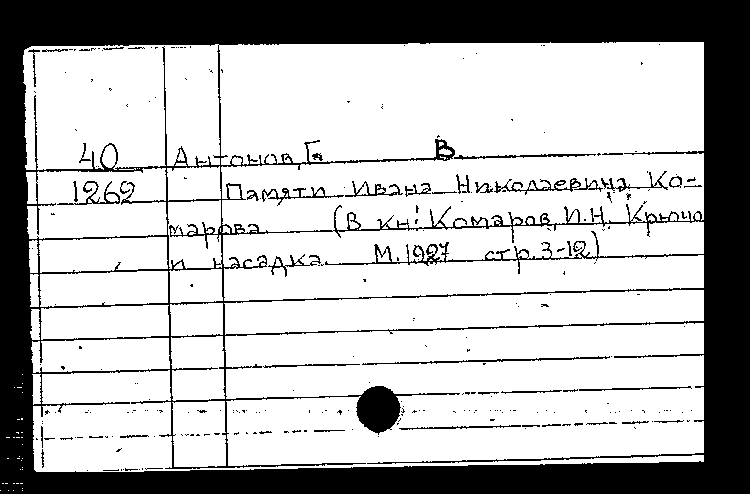 40 Антонов, Г. В.
1262 Памяти Ивана Николаевича Ко-
марова. (В кн: Комаров, И.Н. Крючо
и насадка. М. 1927 стр. 3-12)